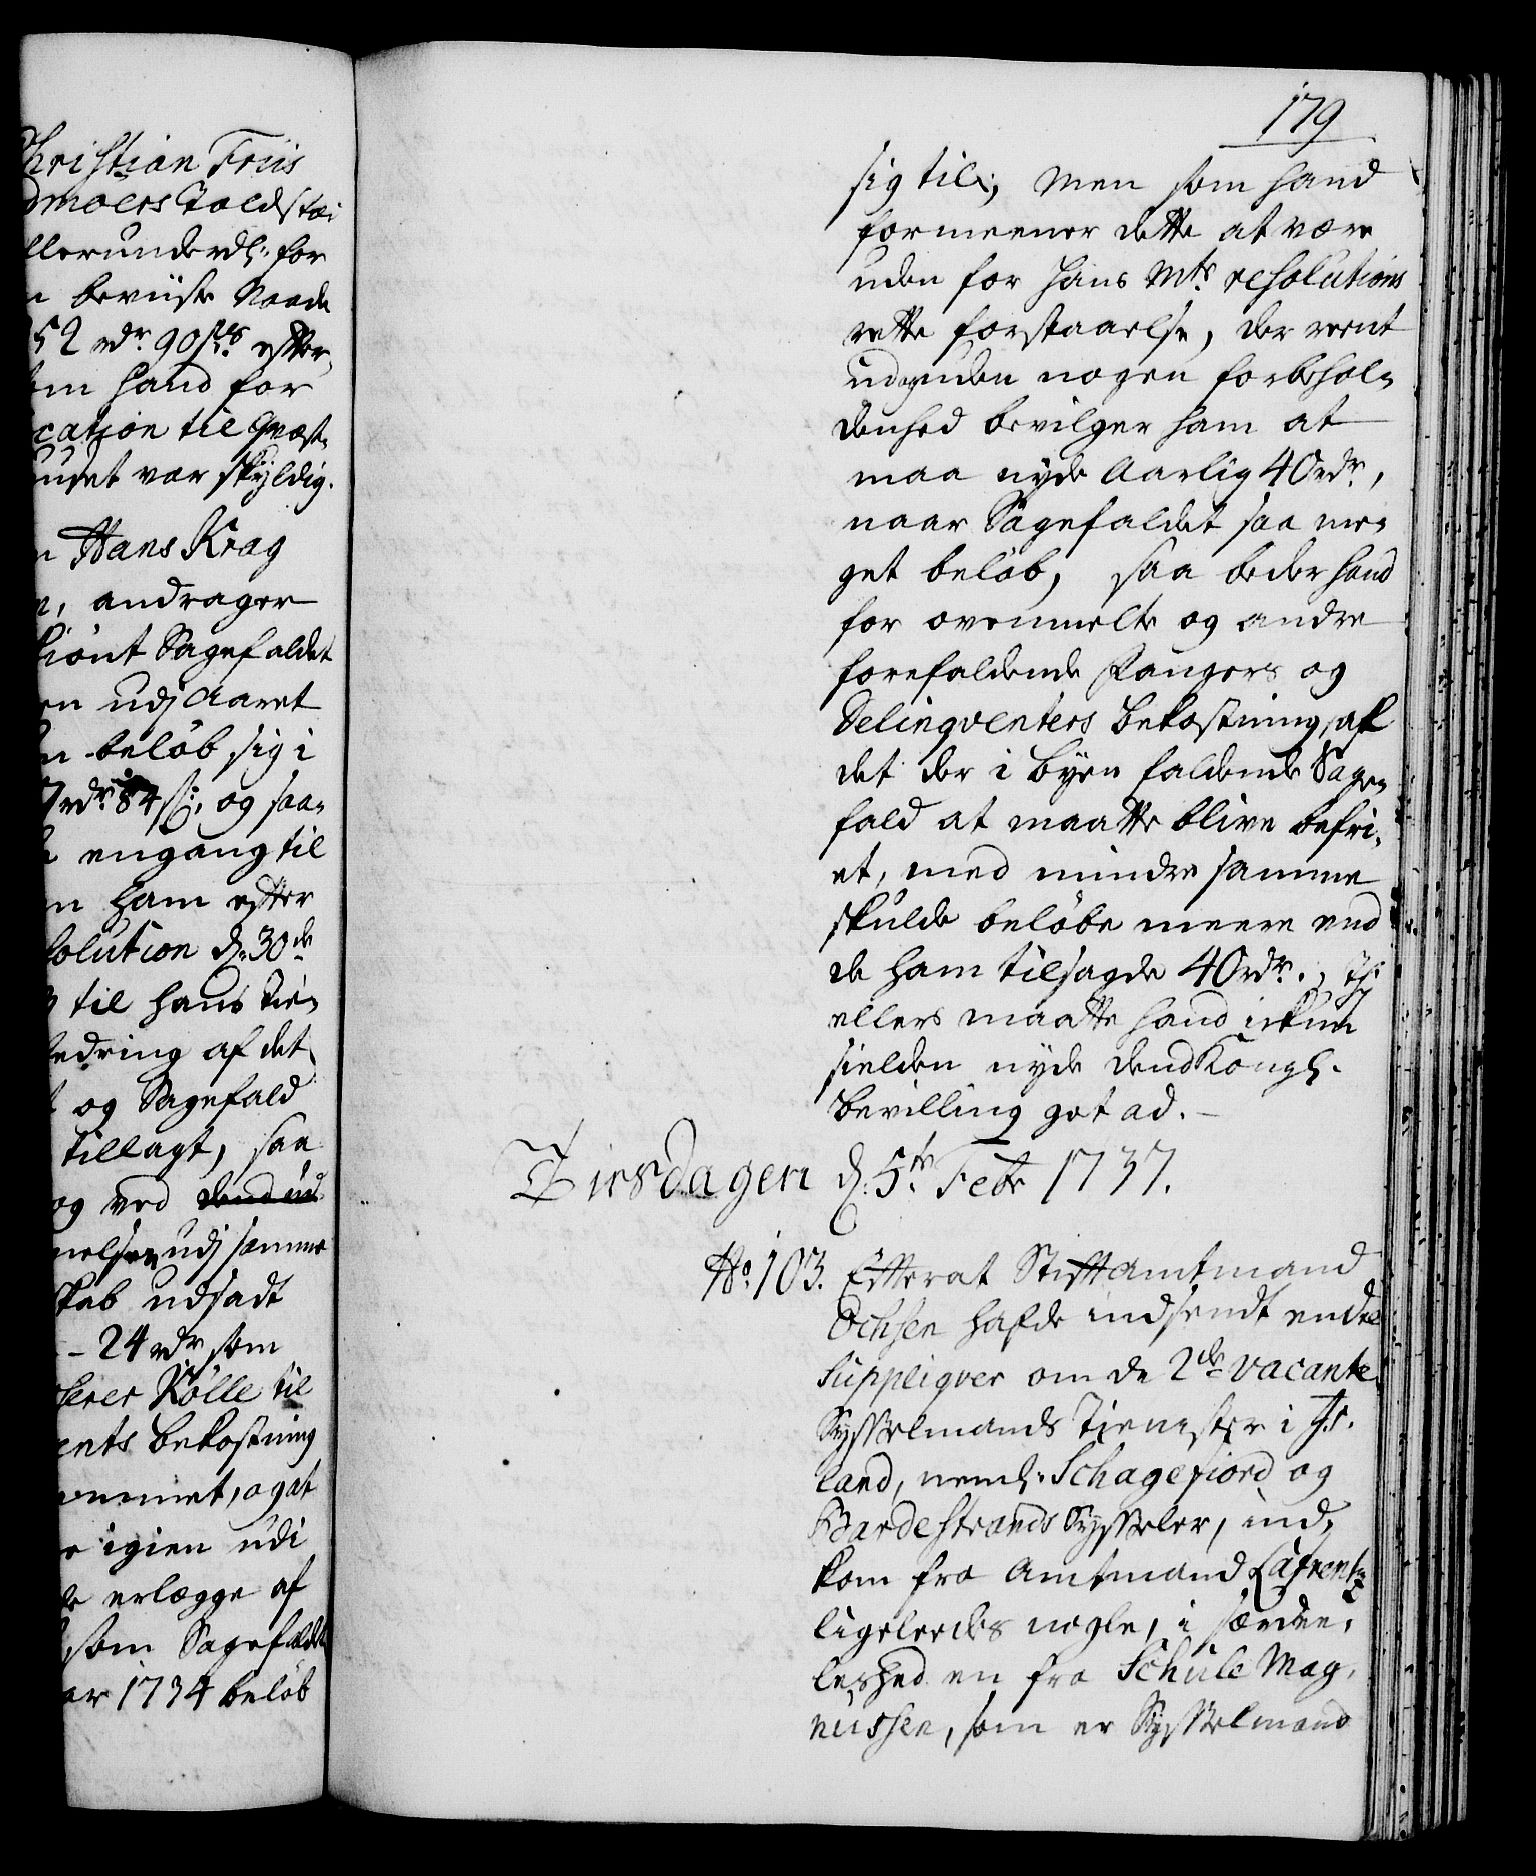 Christian Friis
dmoers Toldstæ-
llerunderdl: for
n beviiste Naade
52 rdr. 90 sk. efter
em hand for
cation til Qvæst-
huuset var skyldig.
n Hans Krag
n, andrager
Sagefaldet
en udj Aaret
beløb sig i
7 rdr 84 sk:, og saa-
engang til
ham efter
solution d: 30de
til hans Tie-
af det
og Sagefald
tillagt, saa
og ved dend ud-
nelsen udj samme
skab udsadt
- 24 rdr som
serer Kølle til
ents bekostning
ommet, og at
igien udi
erlægge af
som Sagefaldet
ar 1734 beløb
179
sig til; Men som hand
formeener dette at være
uden for Hans Mts resolutions
rette forstaaelse, der reent
ud uden nogen forbehol-
denhed bevilger ham at
maa nyde Aarlig 40 rdr,
naar Sagefaldet saa me-
get beløb, saa beder hand
for ovenmelte og andre
forefaldende Fangers og
Delinqventers bekostning, af
det der i Byen faldende Sage-
fald at maatte blive befri-
et, med mindre samme
skulde beløbe meere end
de ham tilsagde 40 rdr., Thi
ellers maatte hand ickun
sielden nyde dend Kongl.
bevilling got ad. -
Tirsdagen d: 5te Febr 1737.
No. 103. Efterat Stiftamtmand
Ochsen hafde indsendt endel
Suppliqver om de 2de vacante
Sysselmands Tienester i Is-
land, neml: Schagefiord og
Bardestrands Sysseler, ind-
kom fra Amtmand Lafrentz
ligeledes nogle, i særdee-
leshed en fra Schule Mag-
nussen, som er Sysselmand